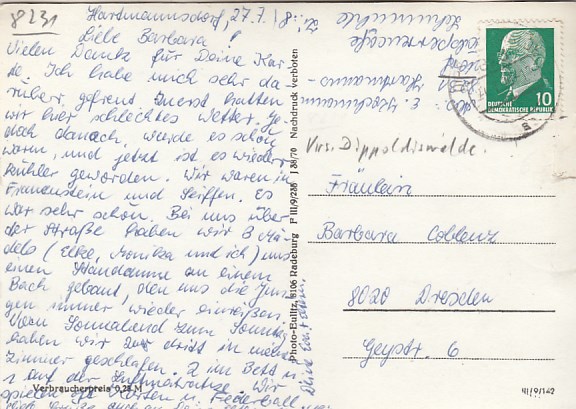 8231
Hartmannsdorf, 27.7.
Liebe Barbara!
Vielen Dank für Deine Kar-
te. Ich habe mich sehr da
rüber gefreut. Zuerst hatten
wir hier schlechtes Wetter. Je
doch danach, wurde es schön
warm, und jetzt ist es wieder
kühler geworden. Wir waren in
Frauenstein und Seiffen. Es
war sehr schön. Bei uns über
der Straße haben wir 3 Mä-
dels (Elke, Monika und ich) uns
einen Staudamm an einem
Bach gebaut, den uns die Jun-
gen immer wieder einreißen.
Vom Sonnabend zum Sonntag
haben wir zu dritt in meinem
Zimmer geschlafen. 2 im Bett u.
1 auf der Luftmatratze. Wir
spielen oft Karten u. Federball
Verbraucherpreis 0,25 M
Photo-Eulitz, 8106 Radeburg P III/9/285 J 38/70 Nachdruck verboten
DEUTSCHE
DEMOKRATISCHE REPUBLIK
10
Vrs. Dippoldiswalde.
Fräulein
Barbara Coblenz
8020 Dresden
Geystr. 6